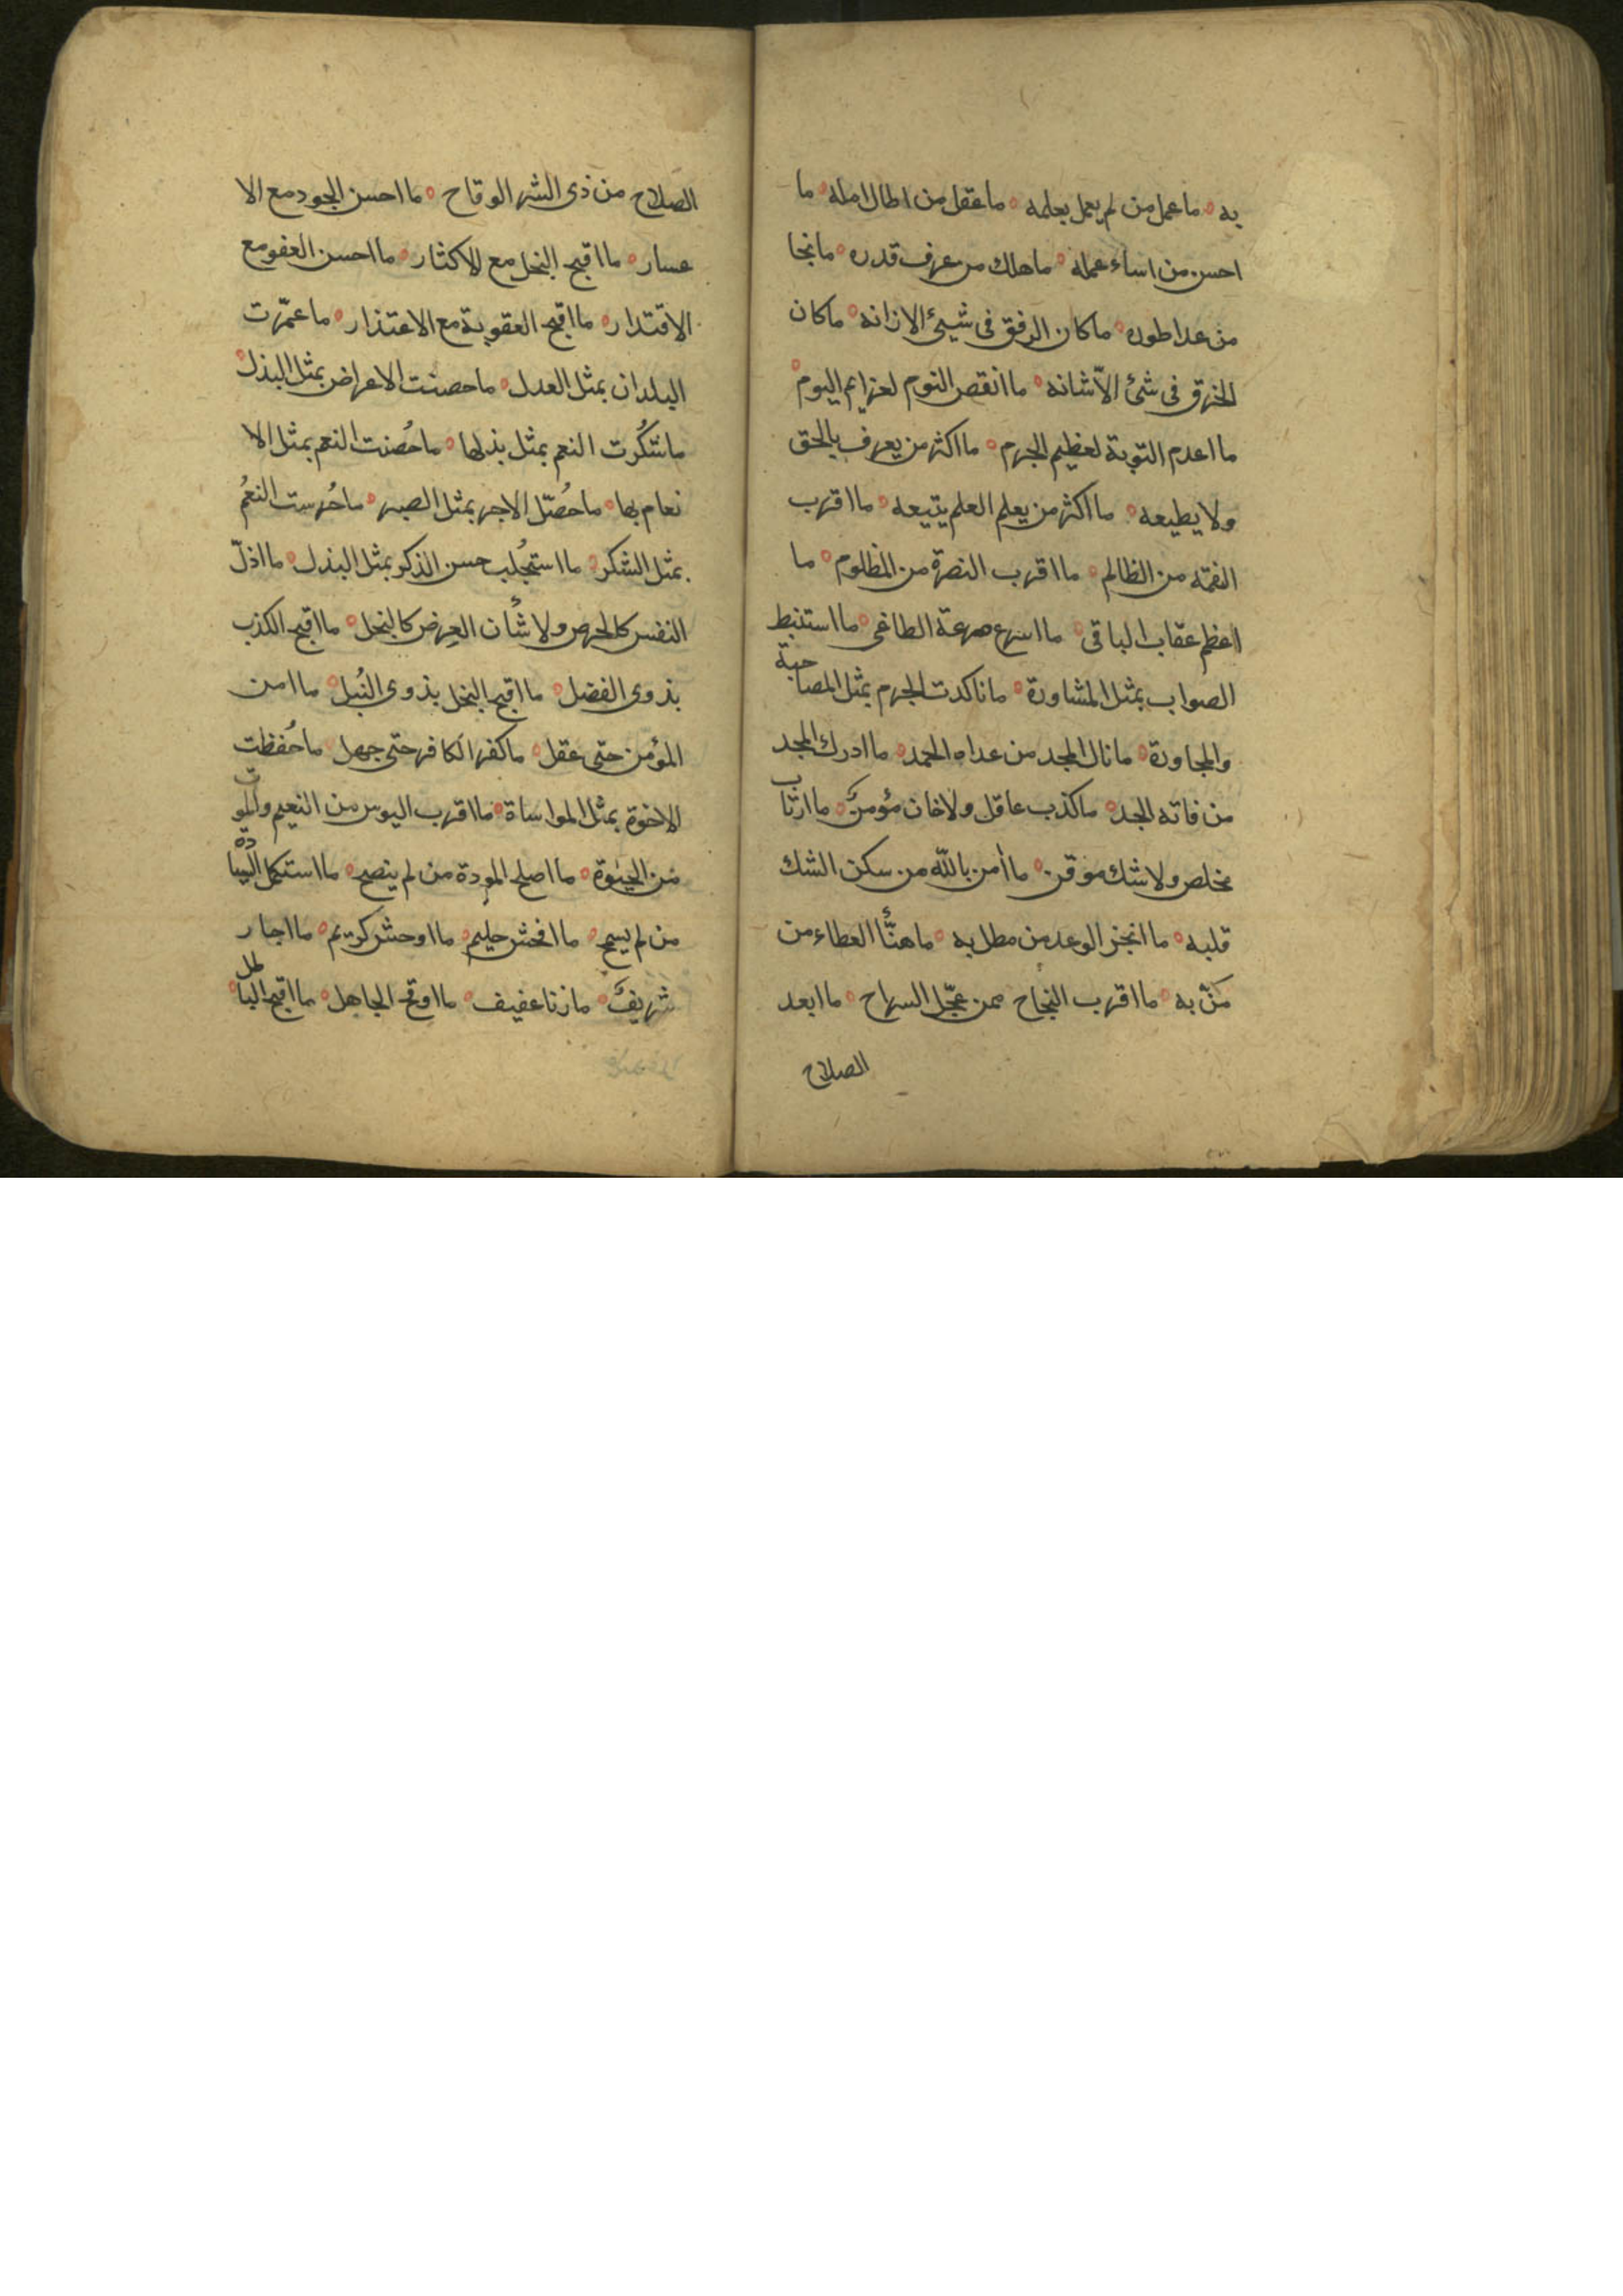 به ما عمل من لم يعمل بعلمه ما عقل من اطال امله ما
احسن من اساء عمله ما هلك من عرف قدره ما نجا
من عدا طوره ما كان الرفق فى شيئ الا زانه ما كان
الخرق فى شئ الّا شانه ما انقص النوم لعزايم اليوم
ما اعدم التوبة لعظيم الجرم ما اكثر من يعرف بالحق
ولا يطيعه ما اكثر من يعلم العلم يتبعه ما اقرب
النقمه من الظالم ما اقرب النصرة من المظلوم ما
اعظم عقاب الباقى ما اسرع صرعة الطاغى ما استنبط
الصواب بمثل المشاورة ما تاكدت الجرم بمثل المصاحبة
والمجاورة ما نال المجد من عداه الحمد ما ادرك المجد
من فاته الجد ما كذب عاقل ولا خان مؤمنٌ ما ارتاب
مخلص ولا شك موقن ما أمن بالله من سكن الشك
قلبه ما انجز الوعد من مطل به ما هنّأ العطاء من
منّ به ما اقرب النجاح ممن عجّل السراح ما ابعد
الصلاح
الصلاح من ذى الشر الوقاح ما احسن الجود مع الا
عسار ما اقبح البخل مع الاكثار ما احسن العفو مع
الاقتدار ما اقبح العقوبة مع الاعتذار ما عمّرت
البلدان بمثل العدل ما حصنت الاعراض بمثل البذل
ما شكُرت النعم بمثل بذلها ما حُصنت النعم بمثل الا
نعام بها ما حُصّل الاجر بمثل الصبر ما حُرست النعمُ
بمثل الشكر ما استجُلب حسن الذكر بمثل البذل ما اذلّ
النفس كالحرص ولا شأن العِرض كالبخل ما اقبح الكذب
بذوى الفضل ما اقبح البخل بذوى النُبل ما امن
المؤمن حتى عقل ما كفر الكافر حتى جهل ما حُفظت
الاخوة بمثل المواساة ما اقرب البوس من النعيم والموت
من الحيٰوة ما اصلح المودة من لم ينصح ما استكمل السيادة
من لم يسمح ما افحش حليم ما اوحش كريم ما اجار
شريفٌ ما زنا عفيف ما اوقح الجاهل ما اقبح الباطل